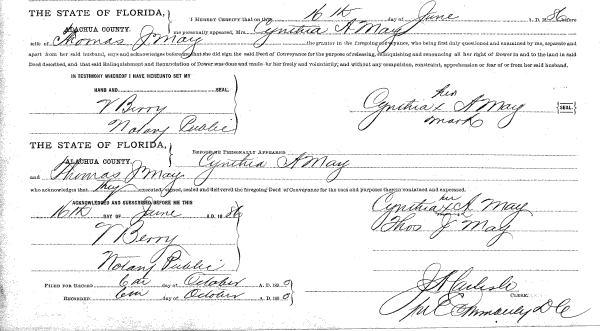 THE STATE OF FLORIDA,
ALACHUA COUNTY.
I HEREBY CERTIFY that on this 16th day of June A. D. 1886 before
me personally appeared, Mrs. Cynthia A May
wife of Thomas J. May the grantor in the foregoing conveyance, who being first duly questioned and examined by me, separate and
apart from her said husband, says and acknowledges before me that she did sign the said Deed of Conveyance for the purpose of releasing, relinquishing and renouncing all her right of Dower in and to the land in said
Deed described, and that said Relinquishment and Renunciation of Dower was done and made by her freely and voluntarily, and without any compulsion, constraint, apprehension or fear of or from her said husband.
IN TESTIMONY WHEREOF I HAVE HEREUNTO SET MY
HAND AND SEAL,
V Berry
Notary Public
her
Cynthia x A May
mark
SEAL
THE STATE OF FLORIDA,
ALACHUA COUNTY.
BEFORE ME PERSONALLY APPEARED Cynthia A May
and Thomas J May
who acknowledges that they executed, signed, sealed and delivered the foregoing Deed of Conveyance for the uses and purposes therein contained and expressed.
ACKNOWLEDGED AND SUBSCRIBED BEFORE ME THIS
16th DAY OF June A. D. 1886
V Berry
Notary Public
her
Cynthia x A. May
Thos J May
FILED FOR RECORD day of October A. D. 18
RECORDED day of October A. D. 18
CLERK.